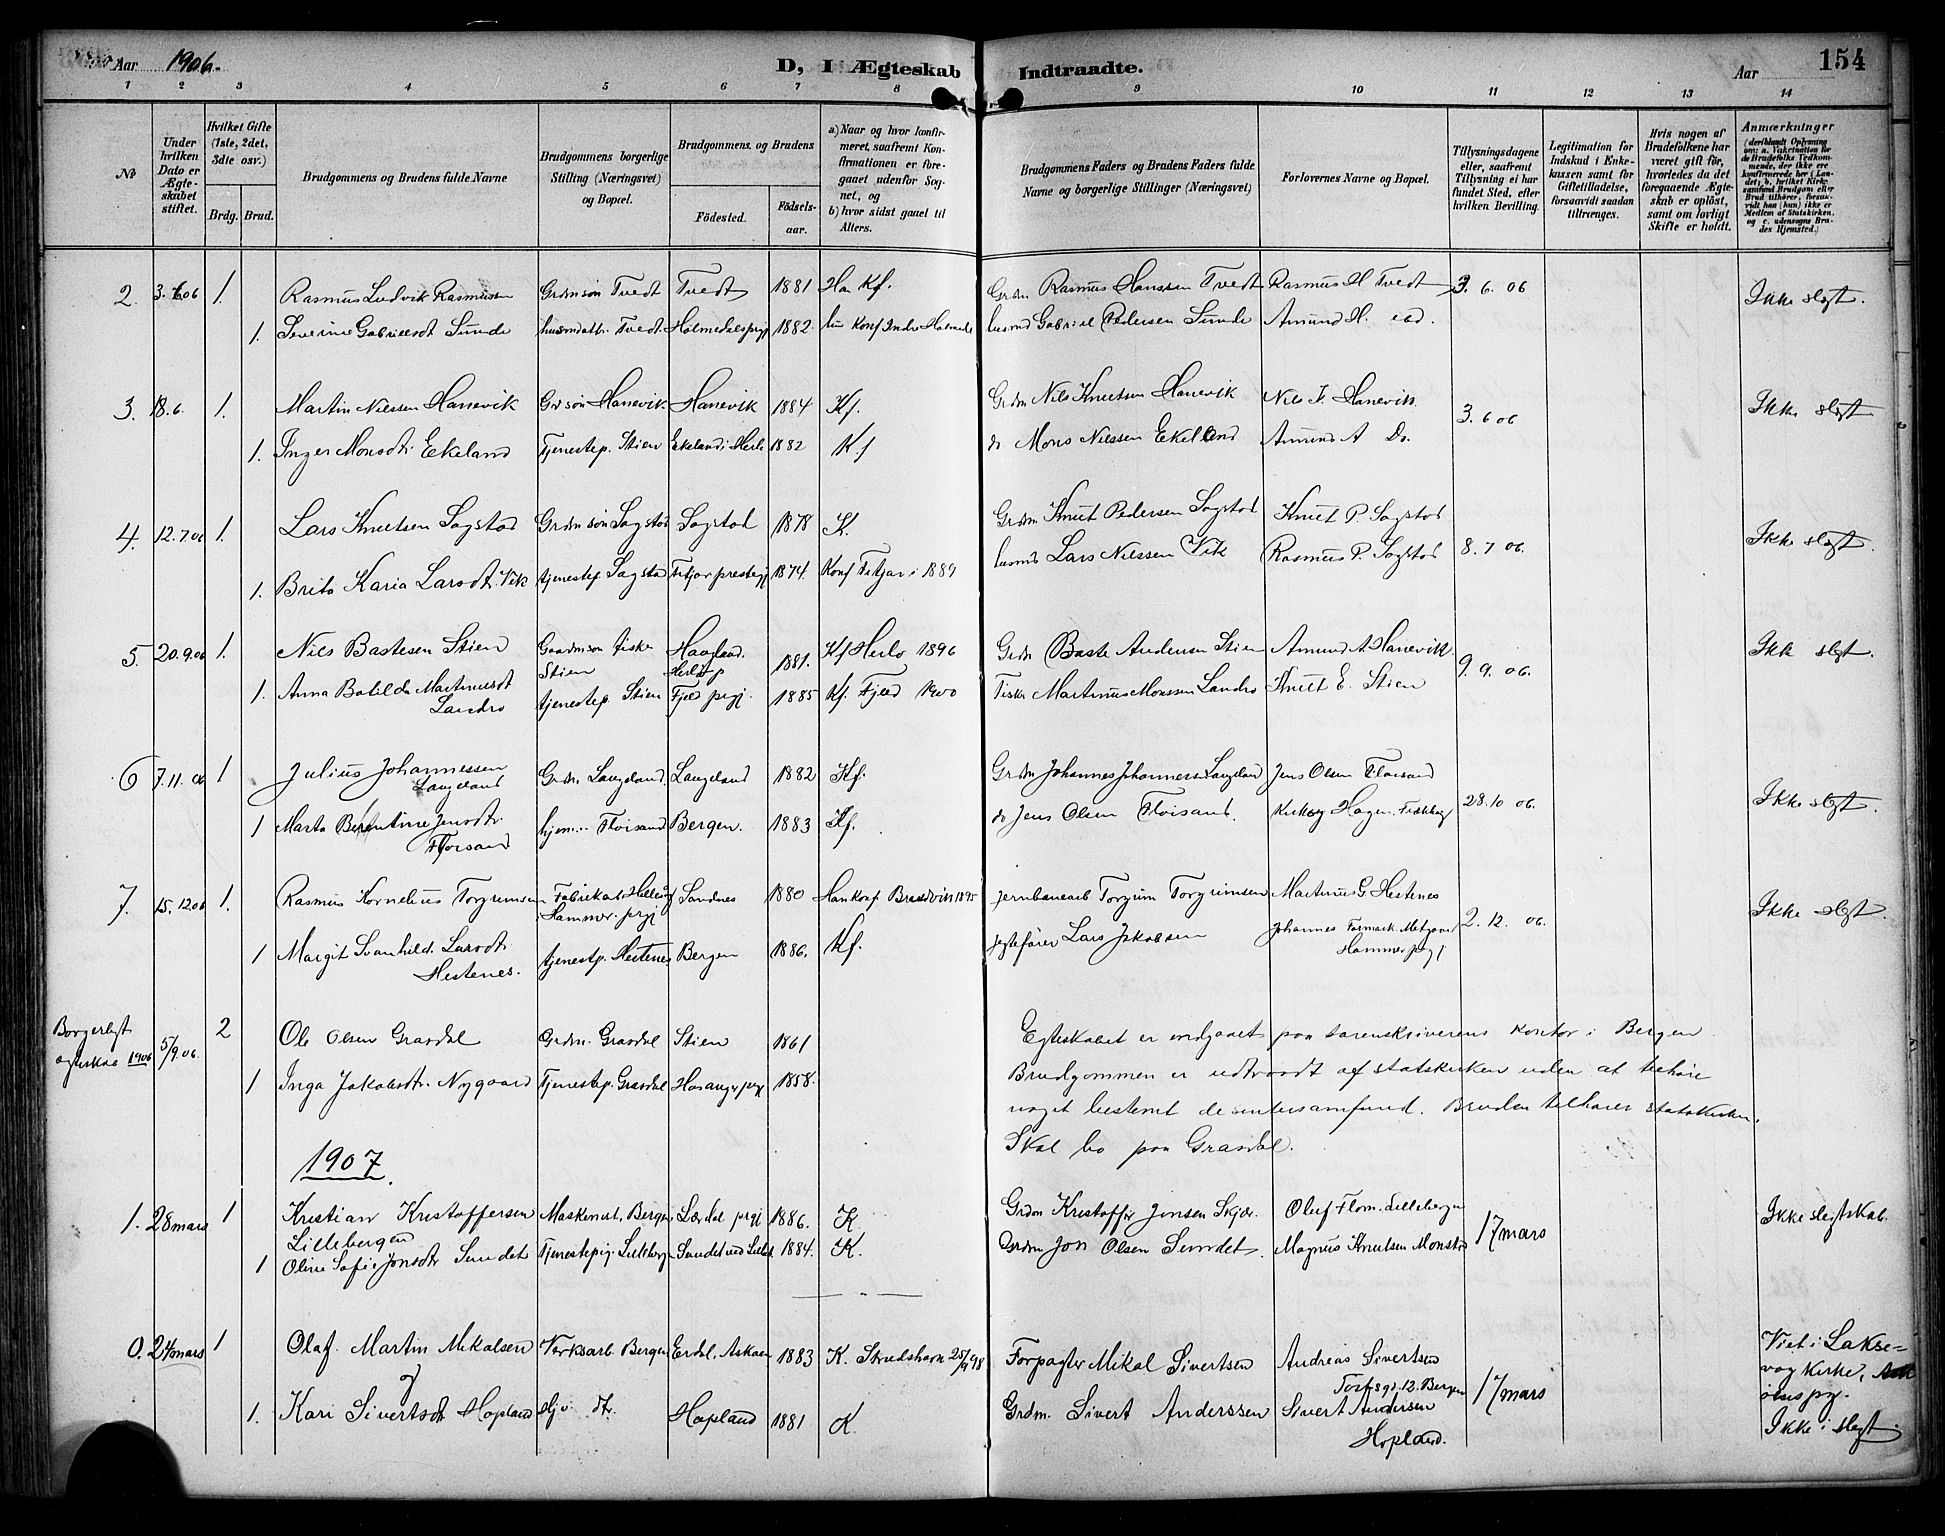 Aar 1906.
D, I Ægteskab Indtraadte.
Aar 154
1 2 3 4 5 6 7 8 9 10 11 12 13 14
No
Under hvilken Dato er Ægteskabet stiftet.
Hvilket Gifte (1ste, 2det, 3die osv.)
Brdg. Brud.
Brudgommens og Brudens fulde Navne
Brudgommens borgerlige Stilling (Næringsvei) og Bopæl.
Brudgommens og Brudens
Födested. Födselsaar.
a) Naar og hvor konfirmeret, saafremt Konfirmationen er foregaaet udenfor Sognet, og
b) hvor sidst gaaet til Alters.
Brudgommens Faders og Brudens Faders fulde Navne og borgerlige Stillinger (Næringsvei)
Forlovernes Navne og Bopæl.
Tillysningsdagene eller, saafremt Tillysning ei har fundet Sted, efter hvilken Bevilling.
Legitimation for Indskud i Enkekassen samt for Giftetilladelse, forsaavidt saadan tiltrænges.
Hvis nogen af Brudefolkene har været gift för, hvorledes da det foregaaende Ægteskab er oplöst, samt om lovligt Skifte er holdt.
Anmærkninger (deriblandt Oplysning om: a. Vakcination for de Brudefolks Vedkommende, der ikke ere konfirmerede her i Landet; b. hvilket Kirkesamfund Brudgom eller Brud tilhører, forsaavidt han (hun) ikke er Medlem af Statskirken, og c. udensogns Brudes Hjemsted.)
2. 3.6.06 1. Rasmus Ludvik Rasmussen Grdmsön Tvedt Tvedt 1881 Han Kf. Grdm Rasmus Hanssen Tvedt Rasmus H Tvedt 3. 6. 06 Ikke slegt.
1. Severine Gabrielsdt Sunde husmdattr. Tvedt Holmedalsprgj 1882. husmd Gabriel Pedersen Sunde Amund H.
3. 18.6. 1. Martin Nilssen Hanevik Grdsön Hanevik Hanevik 1884 Kf. Grdm Nils Knutsen Hanevik Nils K. Hanevik 3.6 06 Ikke slegt
1. Inger Monsdtr Ekeland Tjenestep. Stien Ekeland i Herlø 1882 Kf do Mons Nilssen Ekeland Amund A Do.
4. 12.7.06 1. Lars Knutsen Sagstad Grdmsön Sagstad Sagstad 1878 K. Grdm Knut Pedersen Sagstad Knut P. Sagstad 8. 7 06. Ikke slegt.
1. Brita Karia Larsdtr. Vik tjenestep Sagstad Fitjar prestegj 1874. Konf Fitjar i 1889 husmd Lars Nilssen Vik Rasmus P. Sagstad
5. 20.9.06 1. Nils Bastesen Stien Gaardmsön fisker Haaland. Kf Herlø 1896 Grdm Baste Andersen Stien Amund A Hanevik 9. 9. 06. Ikk slegt.
Stien 1881.
1. Anna Botilda Martinusdt tjenestep. Stien Fjel prgj. 1885 Kf. Fjeld 1900 Fisker Martinus Monssen Landro Knut E. Stien
Landro
6 7.11.06 1 Julius Johannessen Grdm. Langeland Langeland 1882 Kf. Grdm Johannes Johannessen Langeland Jens Olsen Floisand 28.10 06. Ikke slegt.
Langeland
1 Marta Berentine Jensdtr. hjem Floisand Bergen. 1883 Kf. do Jens Olsen Floisand. Hagen
Floisand
7. 15.12.06 1. Rasmus Kornelius Torgrimsen Fabrikarb Sandnes 1880 Han konf 1895 jernbanearb Torgrim Torgrimsen Martinus G. Hestenes 2. 12. 06. Ikke slegt.
Hammer. prgj
1 Margit Svanhild. Larsdtr tjenestp. Hestenes Bergen 1886. Kf. jegtefører Lars Jakobsen Johannes
Hestenes. Hammer prgj
Borgerligt egteskab 1906 5/9.06. 2 Ole Olsen Grasdal Grdm. Grasdal Stien 1861 Egteskabet er indgaaet paa sorenskriverens kontor i Bergen.
1 Inga Jakobsdtr. Nygaard Tjenestep. Grasdal Hosanger prgj 1858. Brudgommen er udtraadt af statskirken uden at tilhøre
noget bestemt dissentersamfund. Bruden tilhører statskirken.
Skal bo paa Grasdal.
1907.
1. 28 mars 1 Kristian Kristoffersen Maskenist, Bergen Lærdal prgj 1886. K Grdm Kristoffer Jensen Skjær. Oluf Flom. Lillebergen 17 mars Ikke slegtskab.
Lillebergen
1 Oline Sofie Jonsdtr Sundet Tjenestepig. Lillebergen 1884. K. Grdm Jon Olsen Sundet. Magnus Knutsen Monstad
0. 24 mars 1 Olaf Martin Mikalsen Verksarb. Bergen Erdal, Askøen 1883 K. Strudshavn 25/9 98 Forpagter Mikal Sivertsen Andreas Sivertsen 17 mars Viet i Lakse-
12. Bergen vog Kirke, Ask
øens pg.
1. Kari Sivertsdt Hopland Hopland 1881 K. Grdm. Sivert Anderssen Sivert Andersen Ikke i slegt.
Hopland.